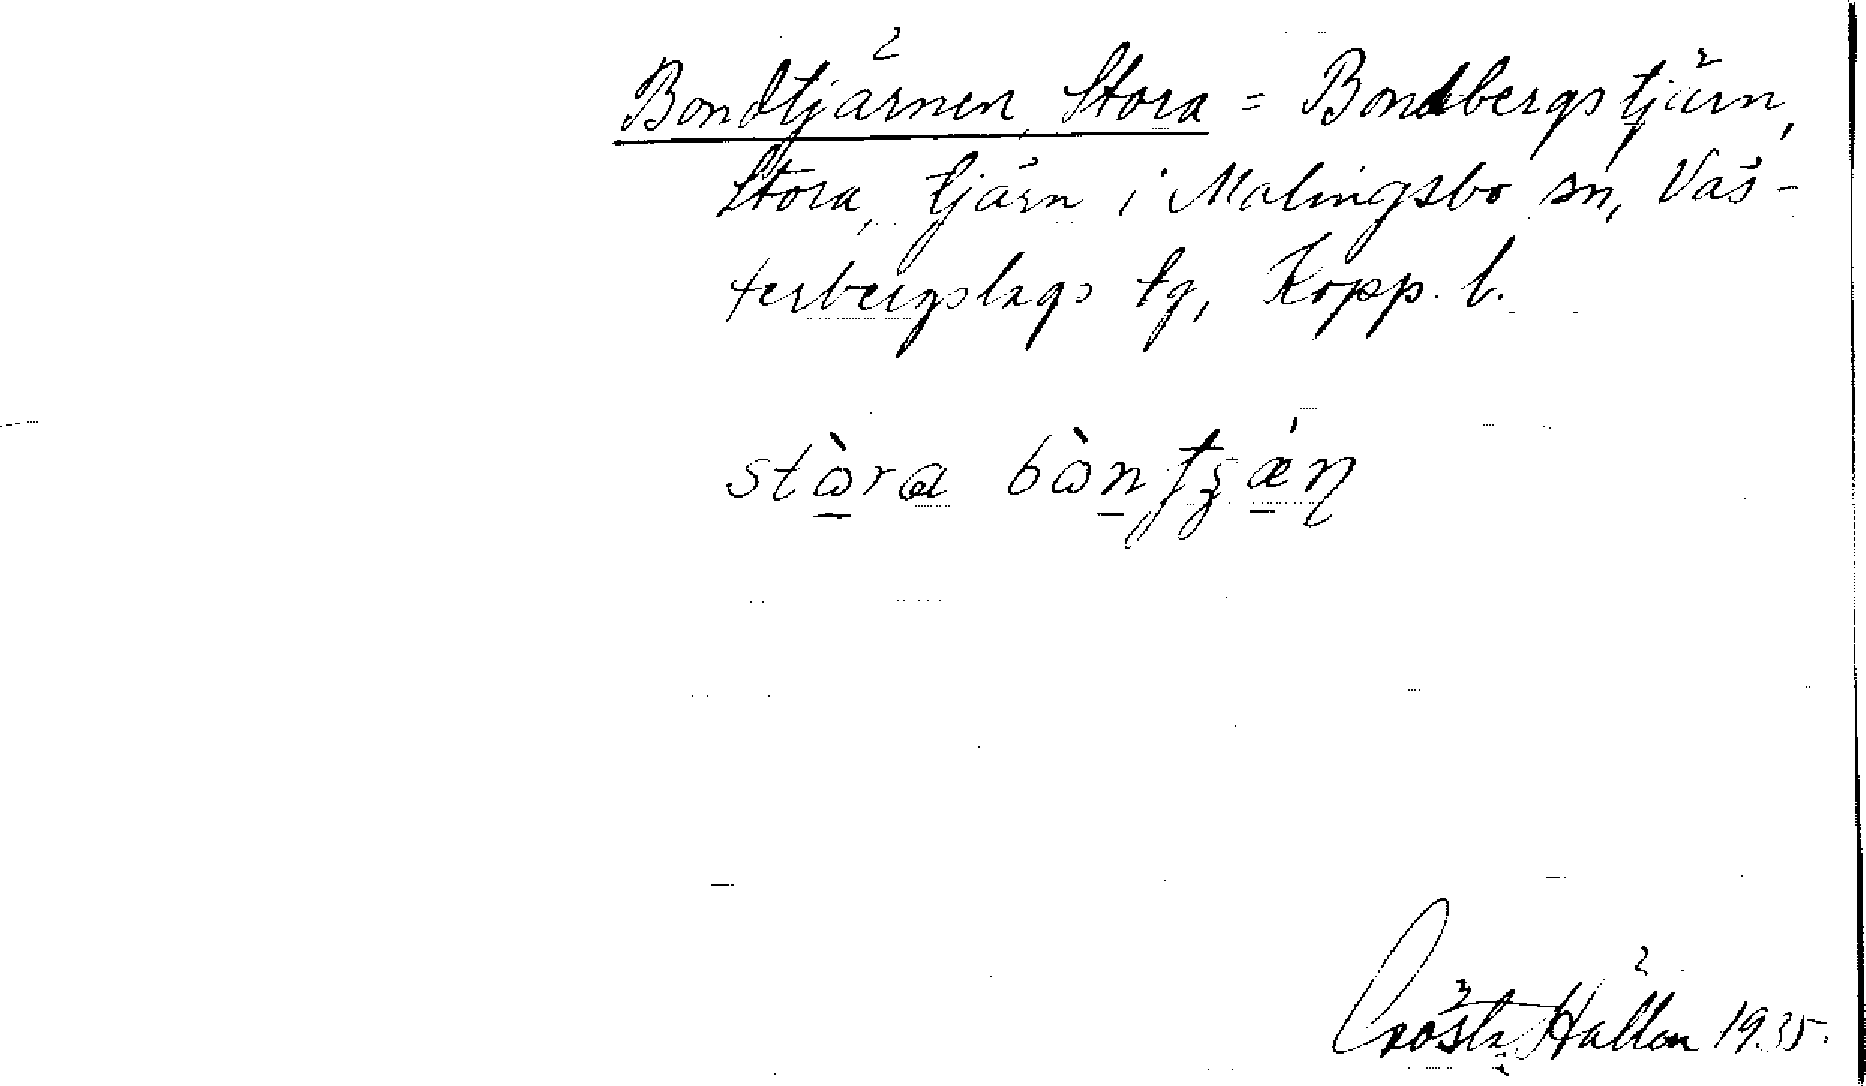 Bondtjärnen, Stora = Bondbergstjärn,
Stora, tjärn i Malingsbo sn, Väs-
terbergslags tg, Kopp. l.
stò̱ra
Gösta Hallén 1935.